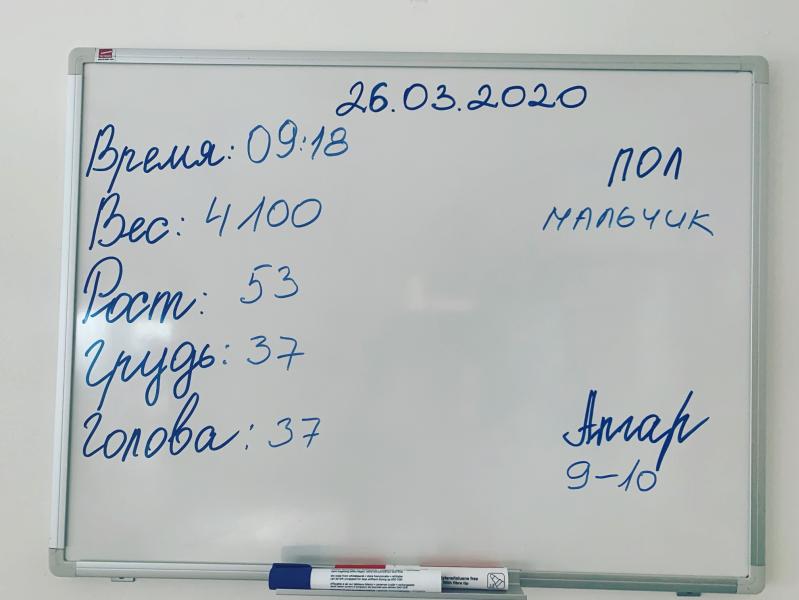 26.03.2020
Время: 09:18
Вес: 4100
Рост: 53
Грудь: 37
Голова: 37
ПОЛ
МАЛЬЧИК
Апгар
9-10